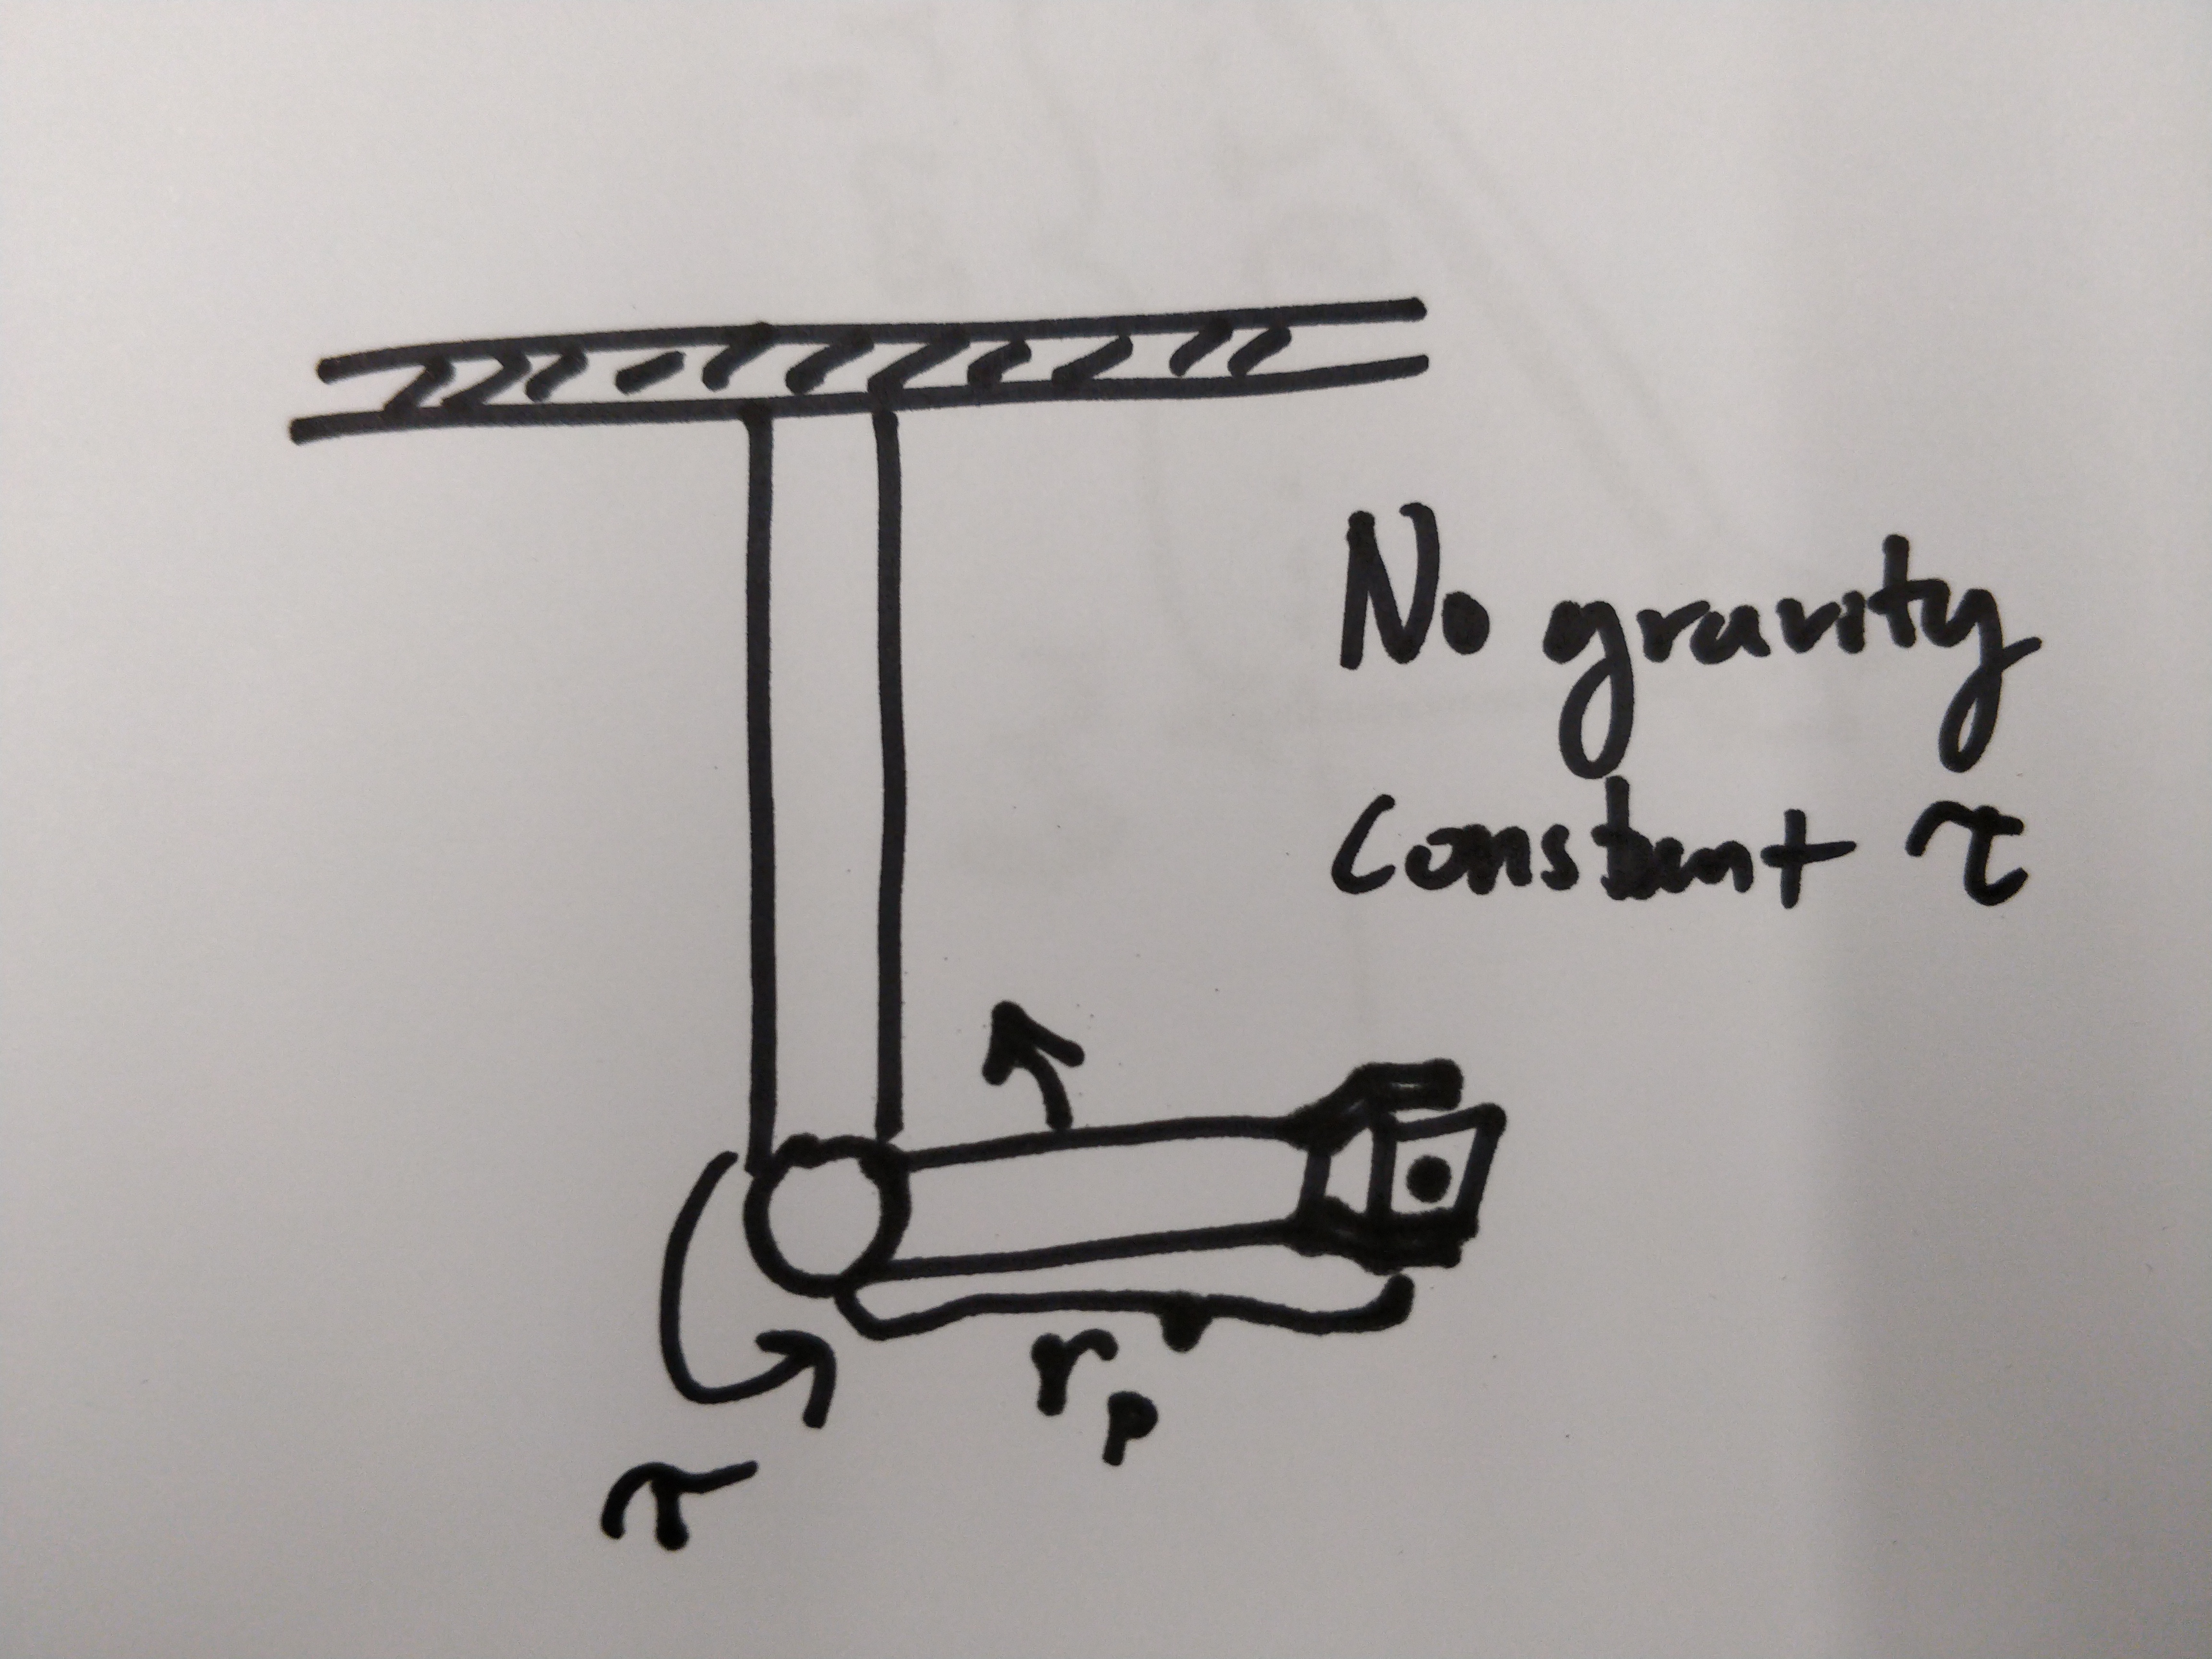 No gravity
Constant τ
r_p
τ